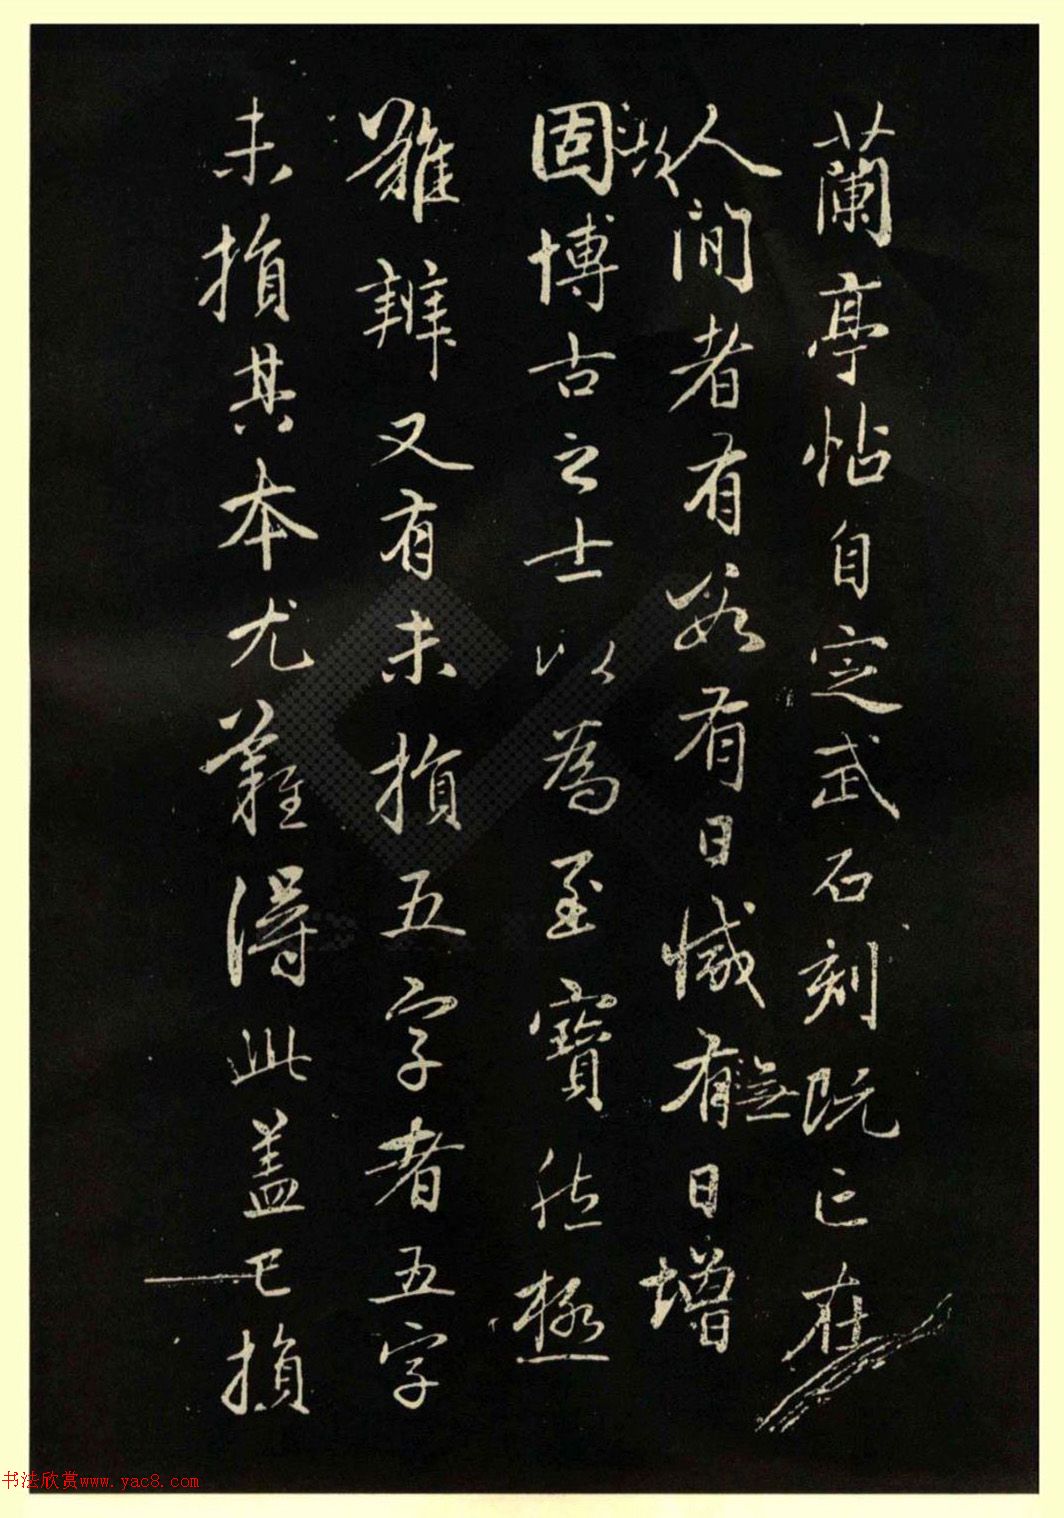 蘭亭帖自定武石刻既亡在
人間者有數有日減有無日增
故固博古之士以為至寶然極
難辨又有未損五字者五字
未損其本尤難得此蓋已損
书法欣赏www.yac8.com